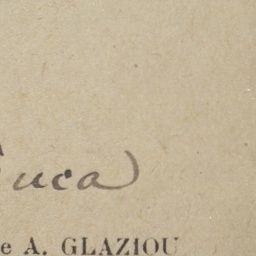 uca
e A. GLAZIOU